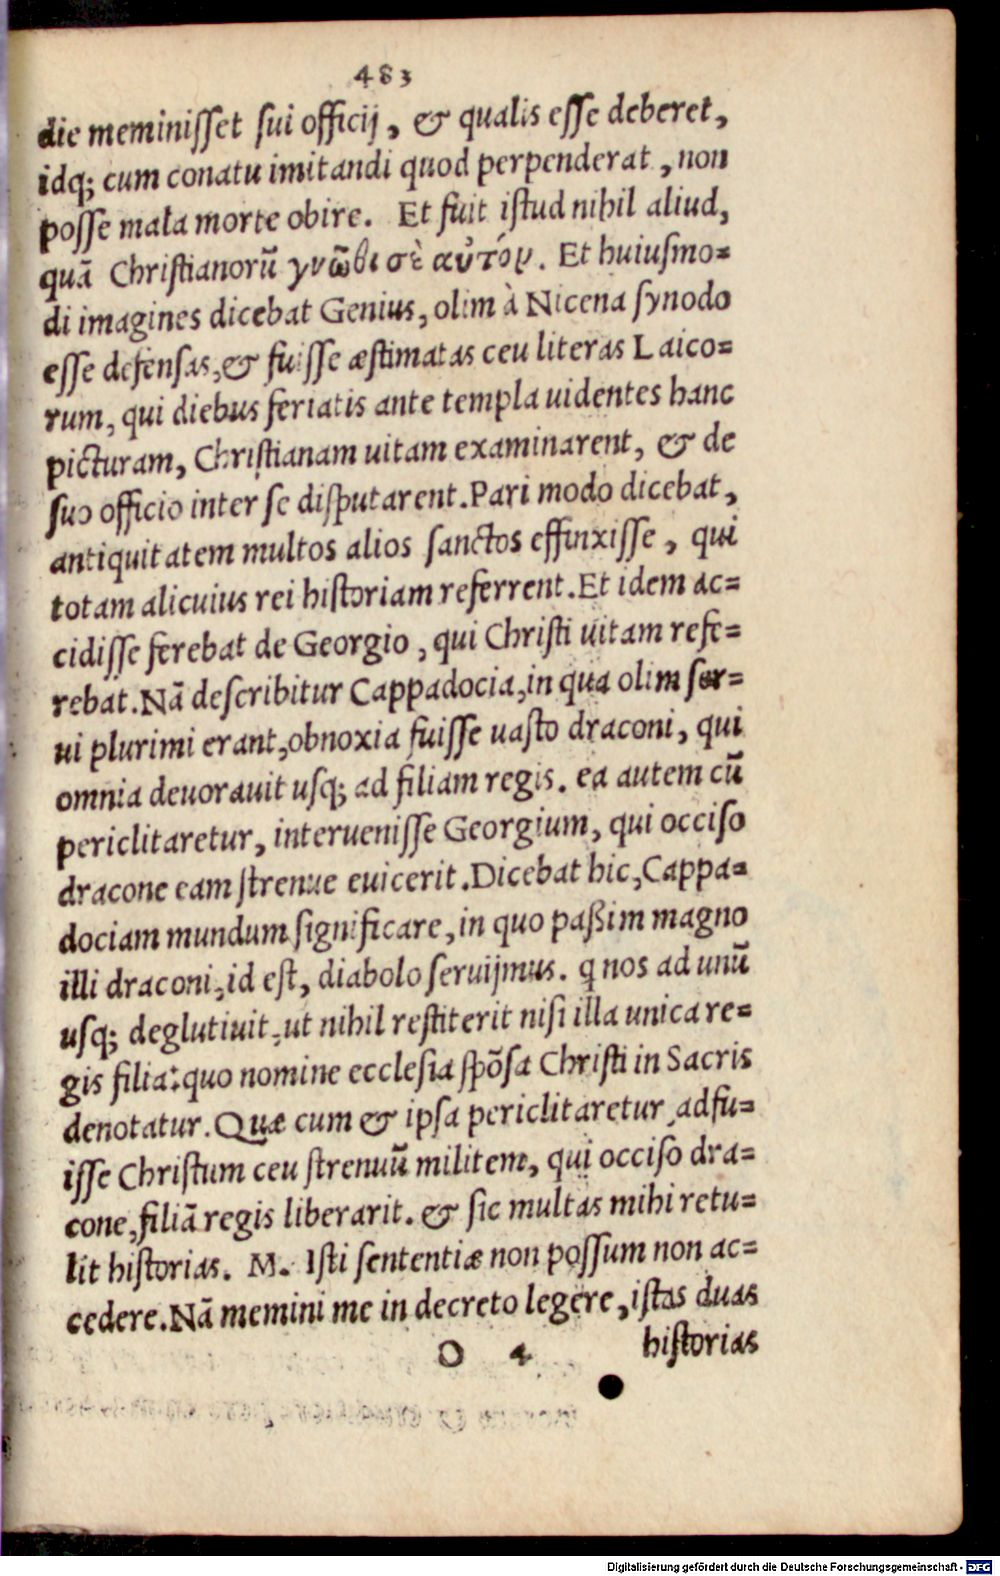 483
die meminiſſet ſui officij, & qualis eſſe deberet,
idq; cum conatu imitandi quod perpenderat, non
poſſe mala morte obire. Et fuit iſtud nihil aliud,
quã Chriſtianorũ γνῶθι σὲ αὐτόν. Et huiuſmo=
di imagines dicebat Genius, olim à Nicena ſynodo
eſſe defenſas, & fuiſſe æſtimatas ceu literas Laico=
rum, qui diebus feriatis ante templa uidentes hanc
picturam, Chriſtianam uitam examinarent, & de
ſuo officio inter ſe diſputarent. Pari modo dicebat,
antiquitatem multos alios ſanctos effinxiſſe, qui
totam alicuius rei hiſtoriam referrent. Et idem ac=
cidiſſe ferebat de Georgio, qui Chriſti uitam refe=
rebat. Nã deſcribitur Cappadocia, in qua olim ſer=
ui plurimi erant, obnoxia fuiſſe uaſto draconi, qui
omnia deuorauit uſq; ad filiam regis. ea autem cũ
periclitaretur, interueniſſe Georgium, qui occiſo
dracone eam ſtrenue euicerit. Dicebat hic, Cappa=
dociam mundum ſignificare, in quo paßim magno
illi draconi, id eſt, diabolo ſeruijmus. q nos ad unũ
uſq; deglutiuit, ut nihil reſtiterit niſi illa unica re=
gis filia: quo nomine eccleſia ſpõſa Chriſti in Sacris
denotatur. Quæ cum & ipſa periclitaretur, adfu=
iſſe Chriſtum ceu ſtrenuũ militem, qui occiſo dra=
cone, filiã regis liberarit. & ſic multas mihi retu=
lit hiſtorias. M. Iſti ſententiæ non poſſum non ac=
cedere. Nã memini me in decreto legere, iſtas duas
O 4 hiſtorias
Digitalisierung gefördert durch die Deutsche Forschungsgemeinschaft - DFG